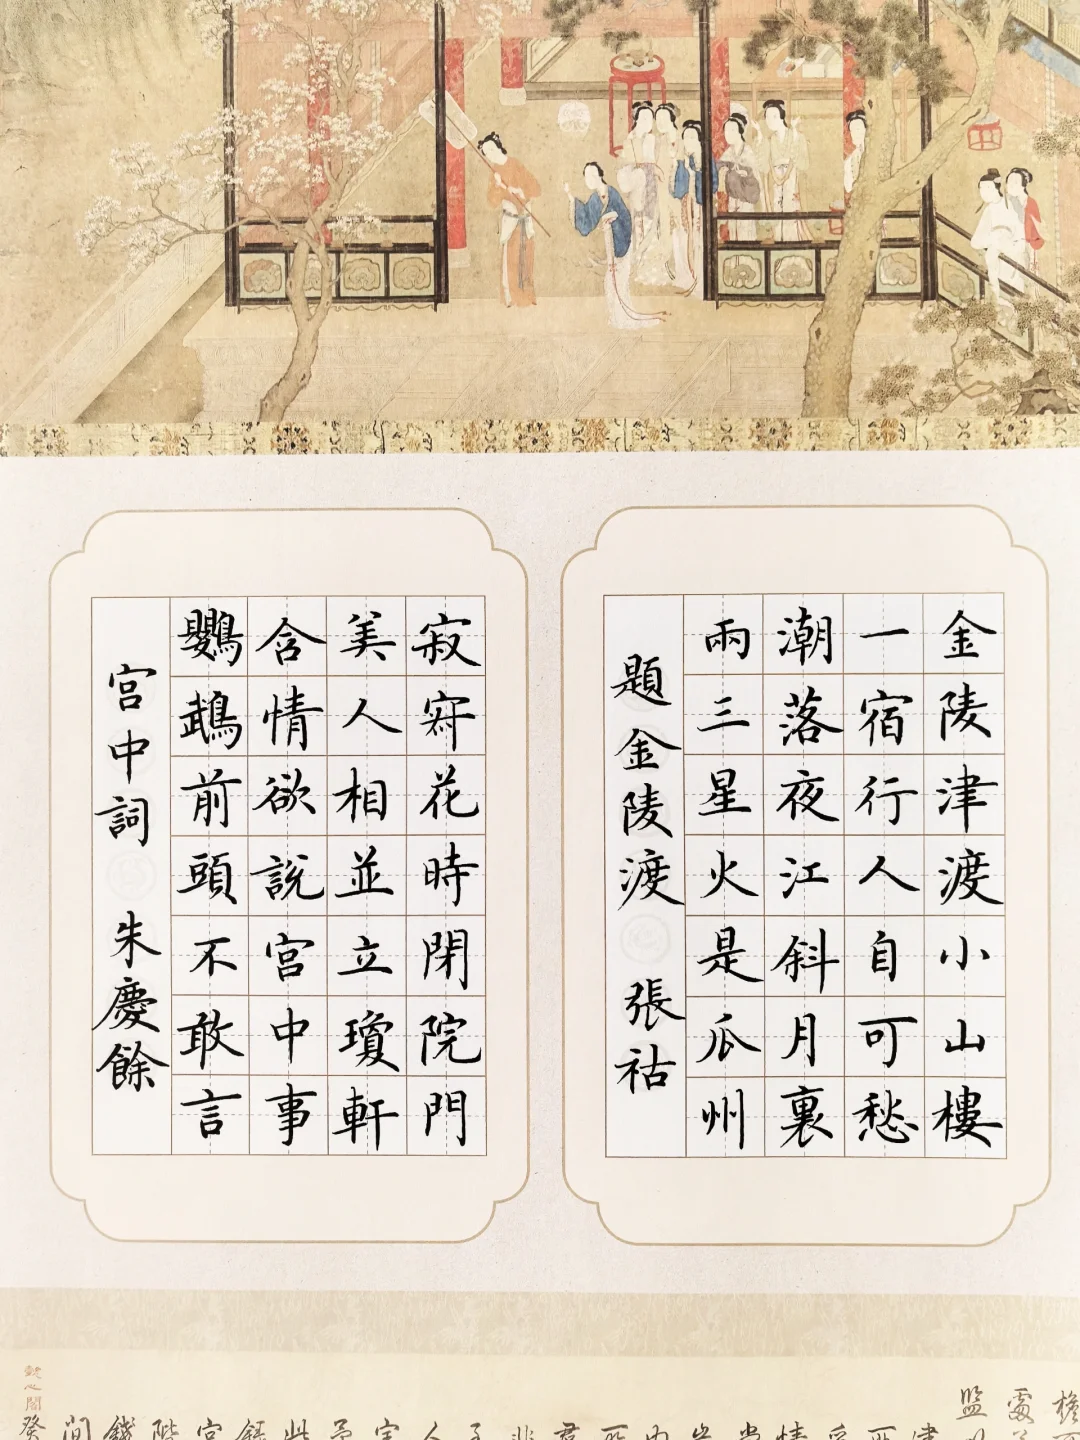 金陵津渡小山樓
一宿行人自可愁
潮落夜江斜月裏
兩三星火是瓜州
題金陵渡 張祜
寂寂花時閉院門
美人相並立瓊軒
含情欲說宮中事
鸚鵡前頭不敢言
宮中詞 朱慶餘